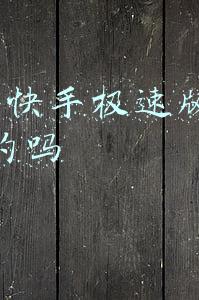 快手极速版
的吗